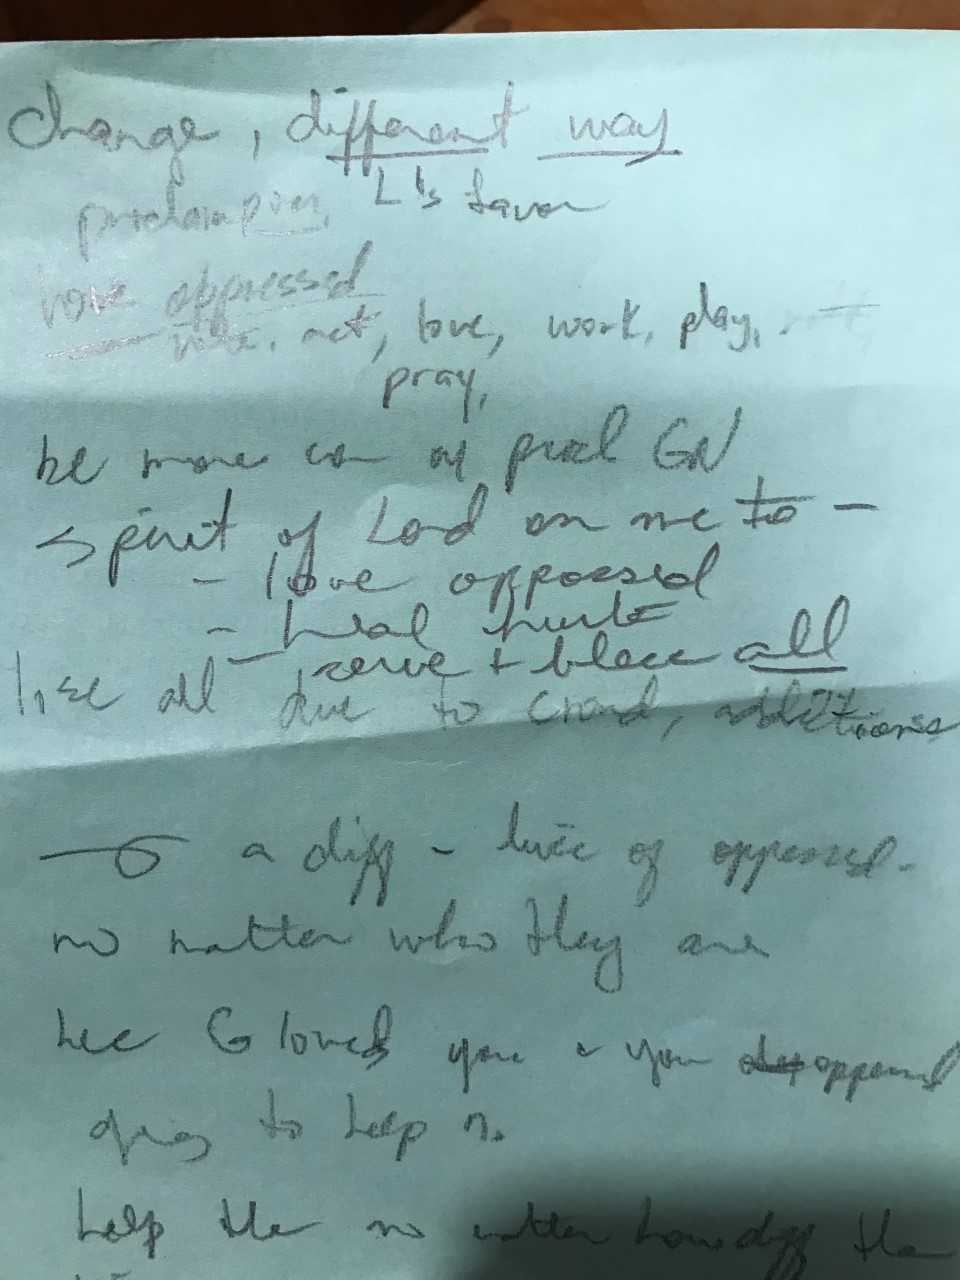 change, different way
L's favor
love oppressed
act, love, work, play,
pray,
be more con of procl GN
spirit of Lord on me to -
- love oppressed
- heal hurts
- serve + bless all
lose all due to crowd, additions
a diff - of oppressed.
no matter who they are
G loves you + you oppressed
to help
help the no matter how diff the